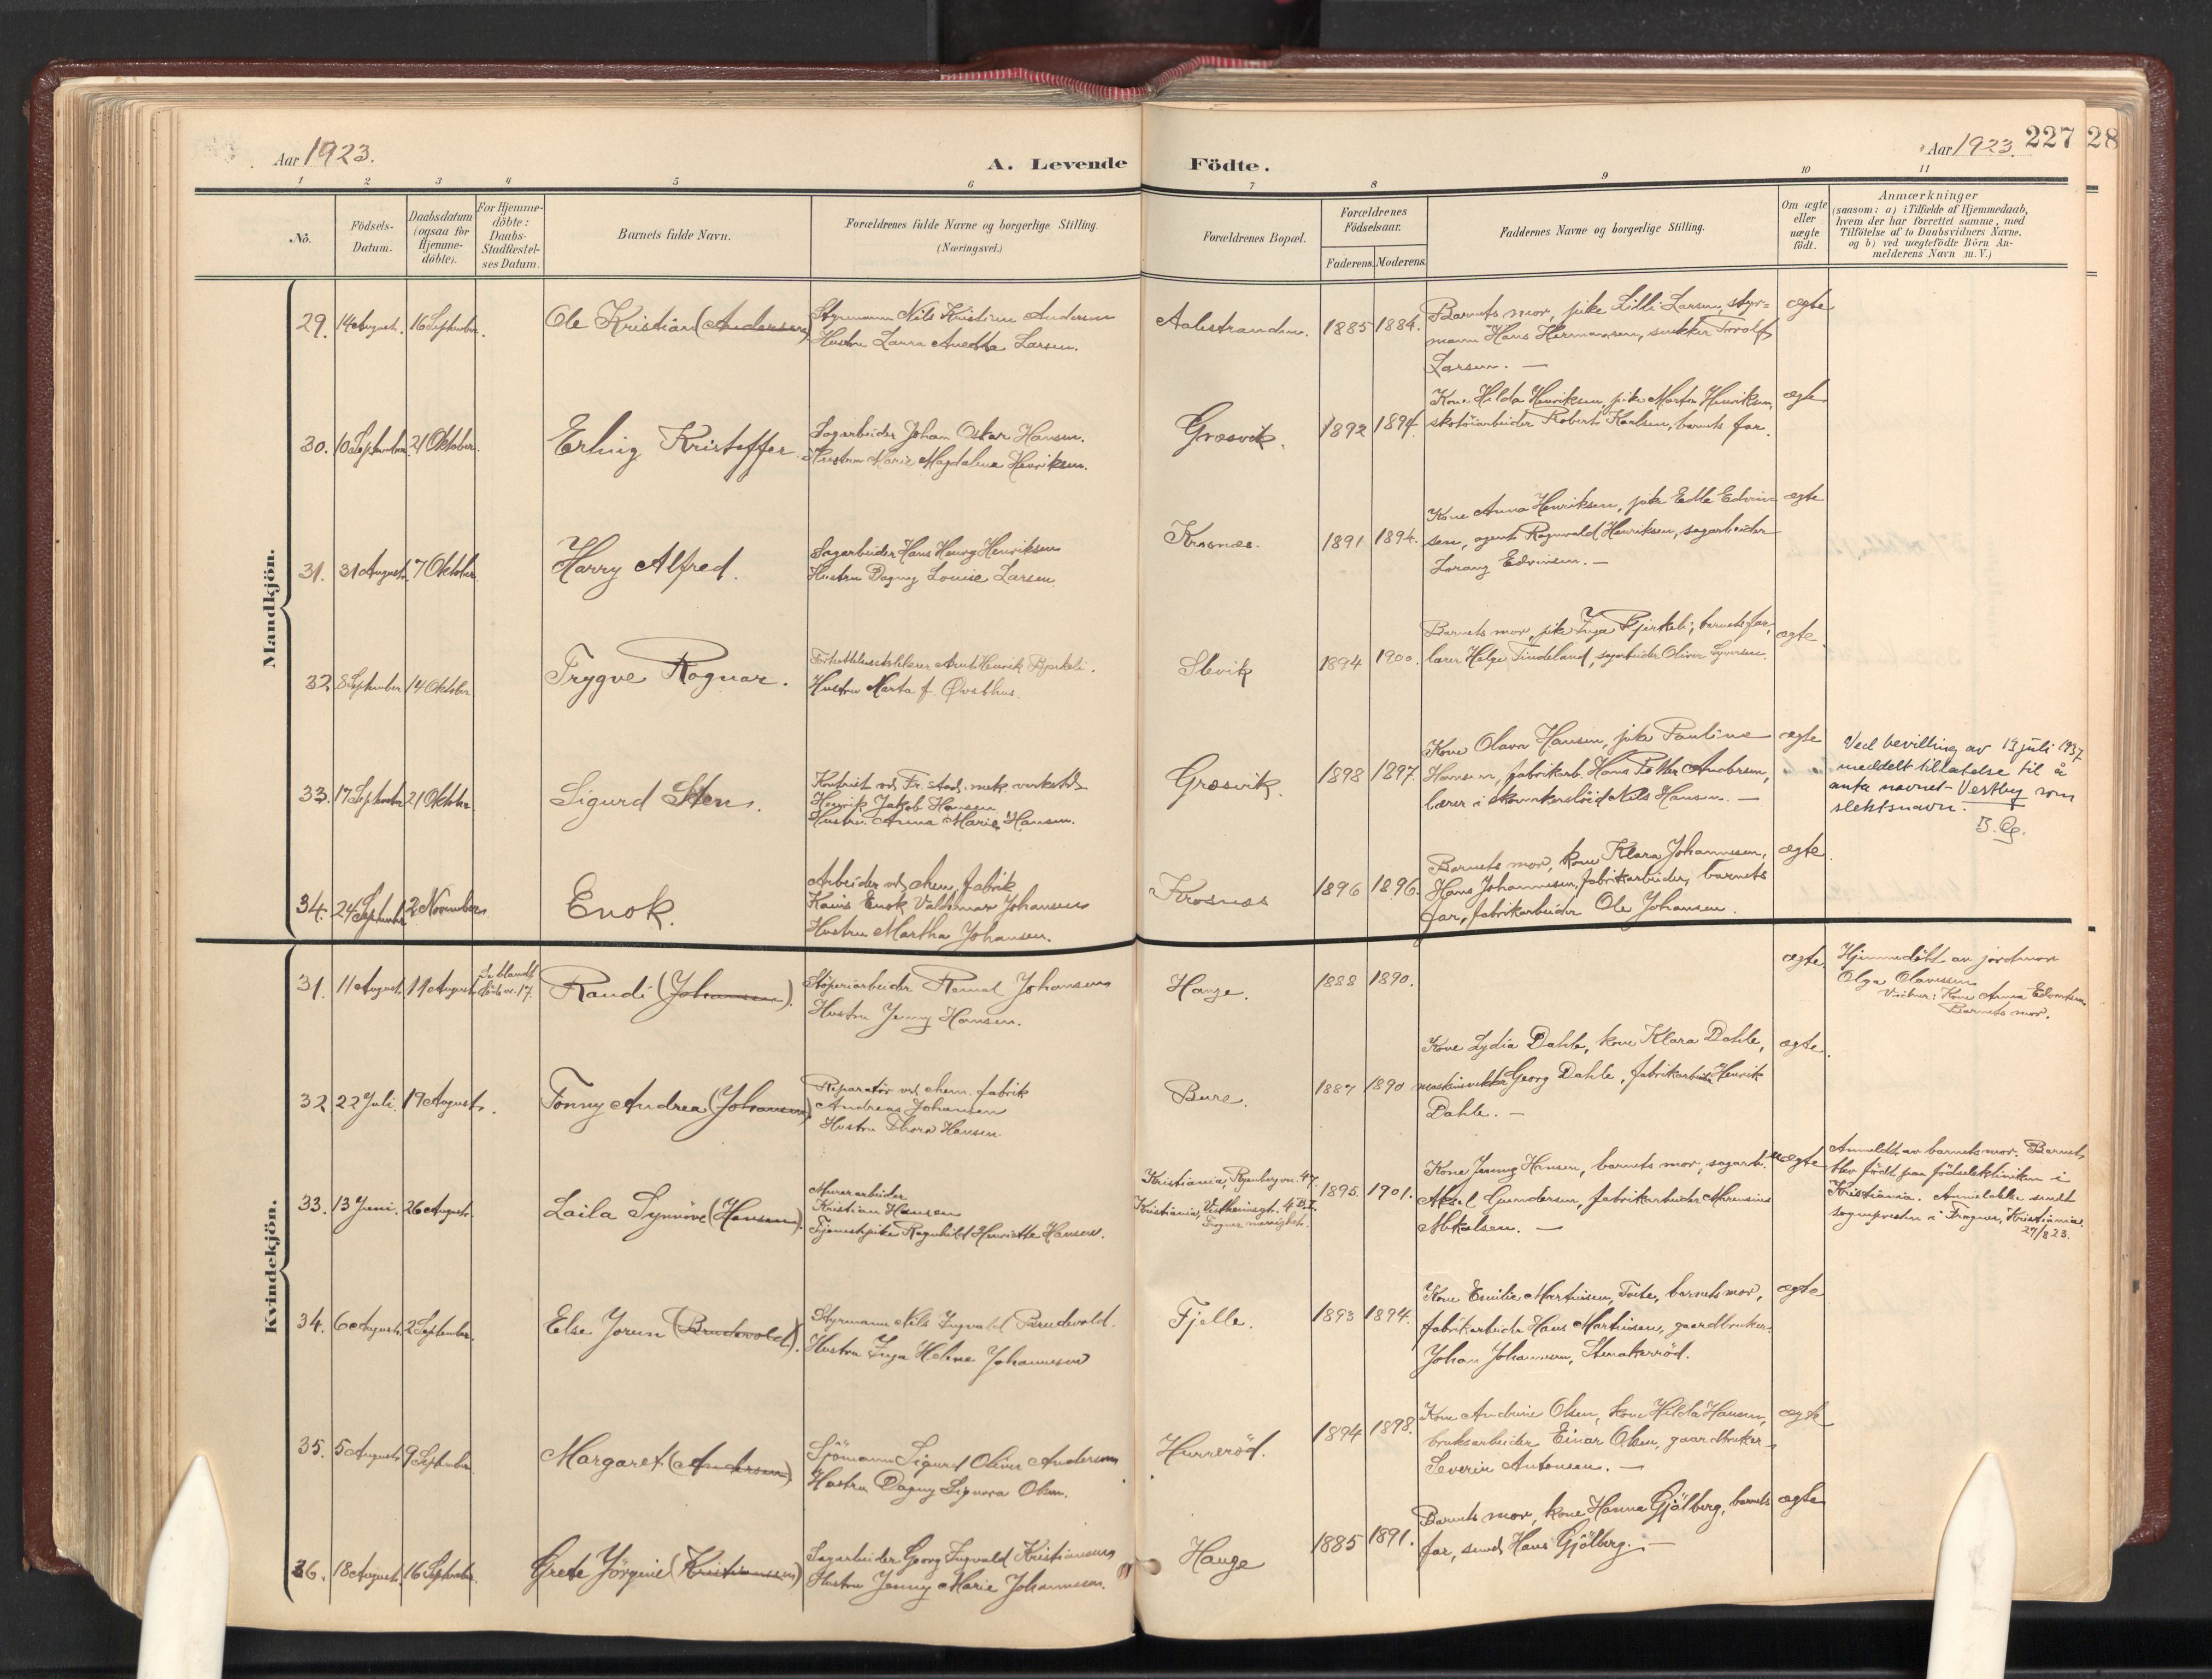 Aar 1923.
A. Levende Födte.
Aar 1923. 227 28
1 2 3 4 5 6 7 8 9 10 11
No.
Födsels-
Datum.
Daabsdatum
(ogsaa for
Hjemme-
döbte).
For Hjemme-
döbte:
Daabs-
Stadfæstel-
ses Datum.
Barnets fulde Navn.
Forældrenes fulde Navne og borgerlige Stilling.
(Næringsvei.)
Forældrenes Bopæl.
Forældrenes
Födselsaar.
Faderens. Moderens.
Faddernes Navne og borgerlige Stilling.
Om ægte
eller
uægte
födt.
Anmærkninger
(saasom: a) i Tilfælde af Hjemmedaab,
hvem der har forrettet samme, med
Tilföielse af to Daabsvidners Navne.
og b) ved uægtefödte Börn An-
melderens Navn m.V.)
Mandkjön.
29. 14 August. 16 September. Ole Kristian (Andersen)
Styrmann Nils Kristian Andersen
Hustru Laura Anetta Larsen.
Aalestranden. 1885 1884.
Barnets mor, pike Lilli Larsen, styr=
mann Hans Hermansen, snekker Torolf
Larsen. —
ægte
30. 10 September. 21 Oktober. Erling Kristoffer.
Sagarbeider Johan Oskar Hansen.
Hustru Marie Magdalena Henriksen.
Græsvik. 1892 1894.
Kone Hilda Henriksen, pike Marta Henriksen,
skotöiarbeider Robert Karlsen, barnets far.
ægte
31. 31 August. 7 Oktober. Harry Alfred.
Sagarbeider Hans Henry Henriksen
Hustru Dagny Louise Larsen.
Krosnes. 1891 1894.
Kone Anna Henriksen, pike Edle Edvin
sen, agent Ragnvald Henriksen, sagarbeider
Lorang Edvinsen. —
ægte
32. 8 September 14 Oktober. Trygve Ragnar.
Hustru Marta f. Øvsthus.
Slevik 1894 1900.
Barnets mor, pike Inga Bjerkeli, barnets far,
lærer Helge Tindeland, sagarbeider Oliver Syversen.
ægte.
33. 17 September 21 Oktober. Sigurd Sten.
Kontorist ved Fr.stad. mek. verksted
Henrik Jakob Hansen
Hustru Anna Marie Hansen.
Græsvik. 1898 1897.
Kone Olava Hansen, pike Pauline
Hansen, fabrikarb. Hans Petter Andersen,
lærer i Nils Hansen. —
ægte
Ved bevilling av 19 juli 1937
meddelt tillatelse til å
anta navnet Vestby som
slektsnavn.
34. 24 September 2 November. Enok.
Arbeider ved chem. fabrik
Enok Valdemar Johansen
Hustru Martha Johansen.
Krosnes 1896 1896.
Barnets mor, kone Klara Johannesen,
Hans Johannesen, fabrikarbeider, barnets
far, fabrikarbeider Ole Johansen.
ægte.
Kvindekjön.
31. 11 August. 11 August. Se blandt döde nr. 17. Randi (Johansen).
Støperiarbeider Johansen
Hustru Jenny Hansen.
Hauge. 1888 1890.
ægte.
Hjemmedöbt av jordmor
Olga Olaussen
Vidner: Kone Anna
Barnets mor.
32 22 Juli. 19 August. Tonny Andrea (Johansen)
Reparatör ved chem. fabrik
Andreas Johansen
Hustru Thora Hansen.
Bure. 1887 1890
Kone Lydia Dahle, kone Klara Dahle,
Georg Dahle, fabrikarbeider Henrik
Dahle. —
ægte.
33. 13 Juni. 26 August. Laila Synnöve (Hansen).
Murerarbeider
Kristian Hansen
Tjenestepike Ragnhild Henriette Hansen.
Kristiania, 47.
Kristiania,
Frogner menighet.
1895. 1901.
Kone Jenny Hansen, barnets mor, sagarb.
Aksel Gundersen, fabrikarbeider Marensius
Mikalsen. —
uægte
Anmeldt av barnets mor. Barnet
blev födt paa födselsklinikken i
Kristiania. Anmeldelse sendt
sogneprester i Frogner, Kristiania.
27/8 23.
34. 6 August. 2 September. Else Jorun (Brudevold).
Styrmann Nils Ingvald Brudevold.
Hustru Inga Helene Johannesen
Fjelle. 1893 1894.
Kone Emilie Martinsen, Tose, barnets mor,
fabrikarbeider Hans Martinsen, gaardbruker
Johan Johannesen, Stenakerröd.
ægte
35. 5 August. 9 September. Margaret (Andersen)
Sjömann Sigurd Oliver Andersen
Hustru Dagny Signora Olsen.
Hurreröd. 1894 1898.
Kone Andrine Olsen, kone Hilda Hansen,
bruksarbeider Einar Olsen, gaardbruker
Severin Antonsen. —
ægte
36. 18 August. 16 September. Grete Jörgine (Kristiansen)
Sagarbeider Georg Ingvald Kristiansen
Hustru Jenny Marie Johannesen.
Hauge 1885 1891.
Barnets mor, kone Hanna Gjölberg, barnets
far, smed Hans Gjölberg. —
ægte